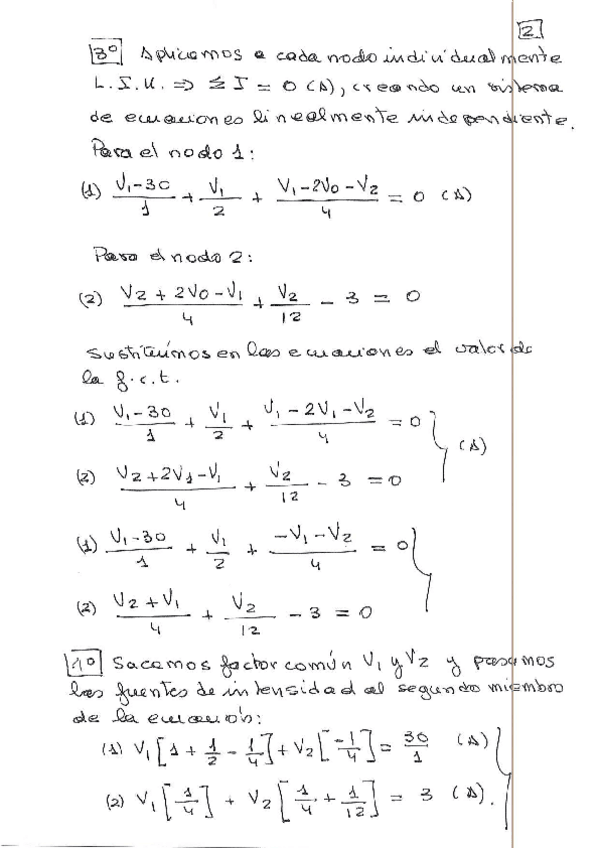 2
3º Aplicamos a cada nodo individualmente
L.I.K. => ΣI = 0 (A), creando un sistema
de ecuaciones linealmente independiente.
Para el nodo 1:
(1) (V1-30)/1 + V1/2 + (V1-2V0-V2)/4 = 0 (A)
Para el nodo 2:
(2) (V2+2V0-V1)/4 + V2/12 - 3 = 0
Sustituimos en las ecuaciones el valor de
la f.c.t.
(1) (V1-30)/1 + V1/2 + (V1-2V1-V2)/4 = 0 } (A)
(2) (V2+2V1-V1)/4 + V2/12 - 3 = 0
(1) (V1-30)/1 + V1/2 + (-V1-V2)/4 = 0 }
(2) (V2+V1)/4 + V2/12 - 3 = 0
1º Sacamos factor común V1 y V2 y pasamos
las fuentes de intensidad al segundo miembro
de la ecuación:
(1) V1[1 + 1/2 - 1/4] + V2[-1/4] = 30/1 (A) }
(2) V1[1/4] + V2[1/4 + 1/12] = 3 (A).